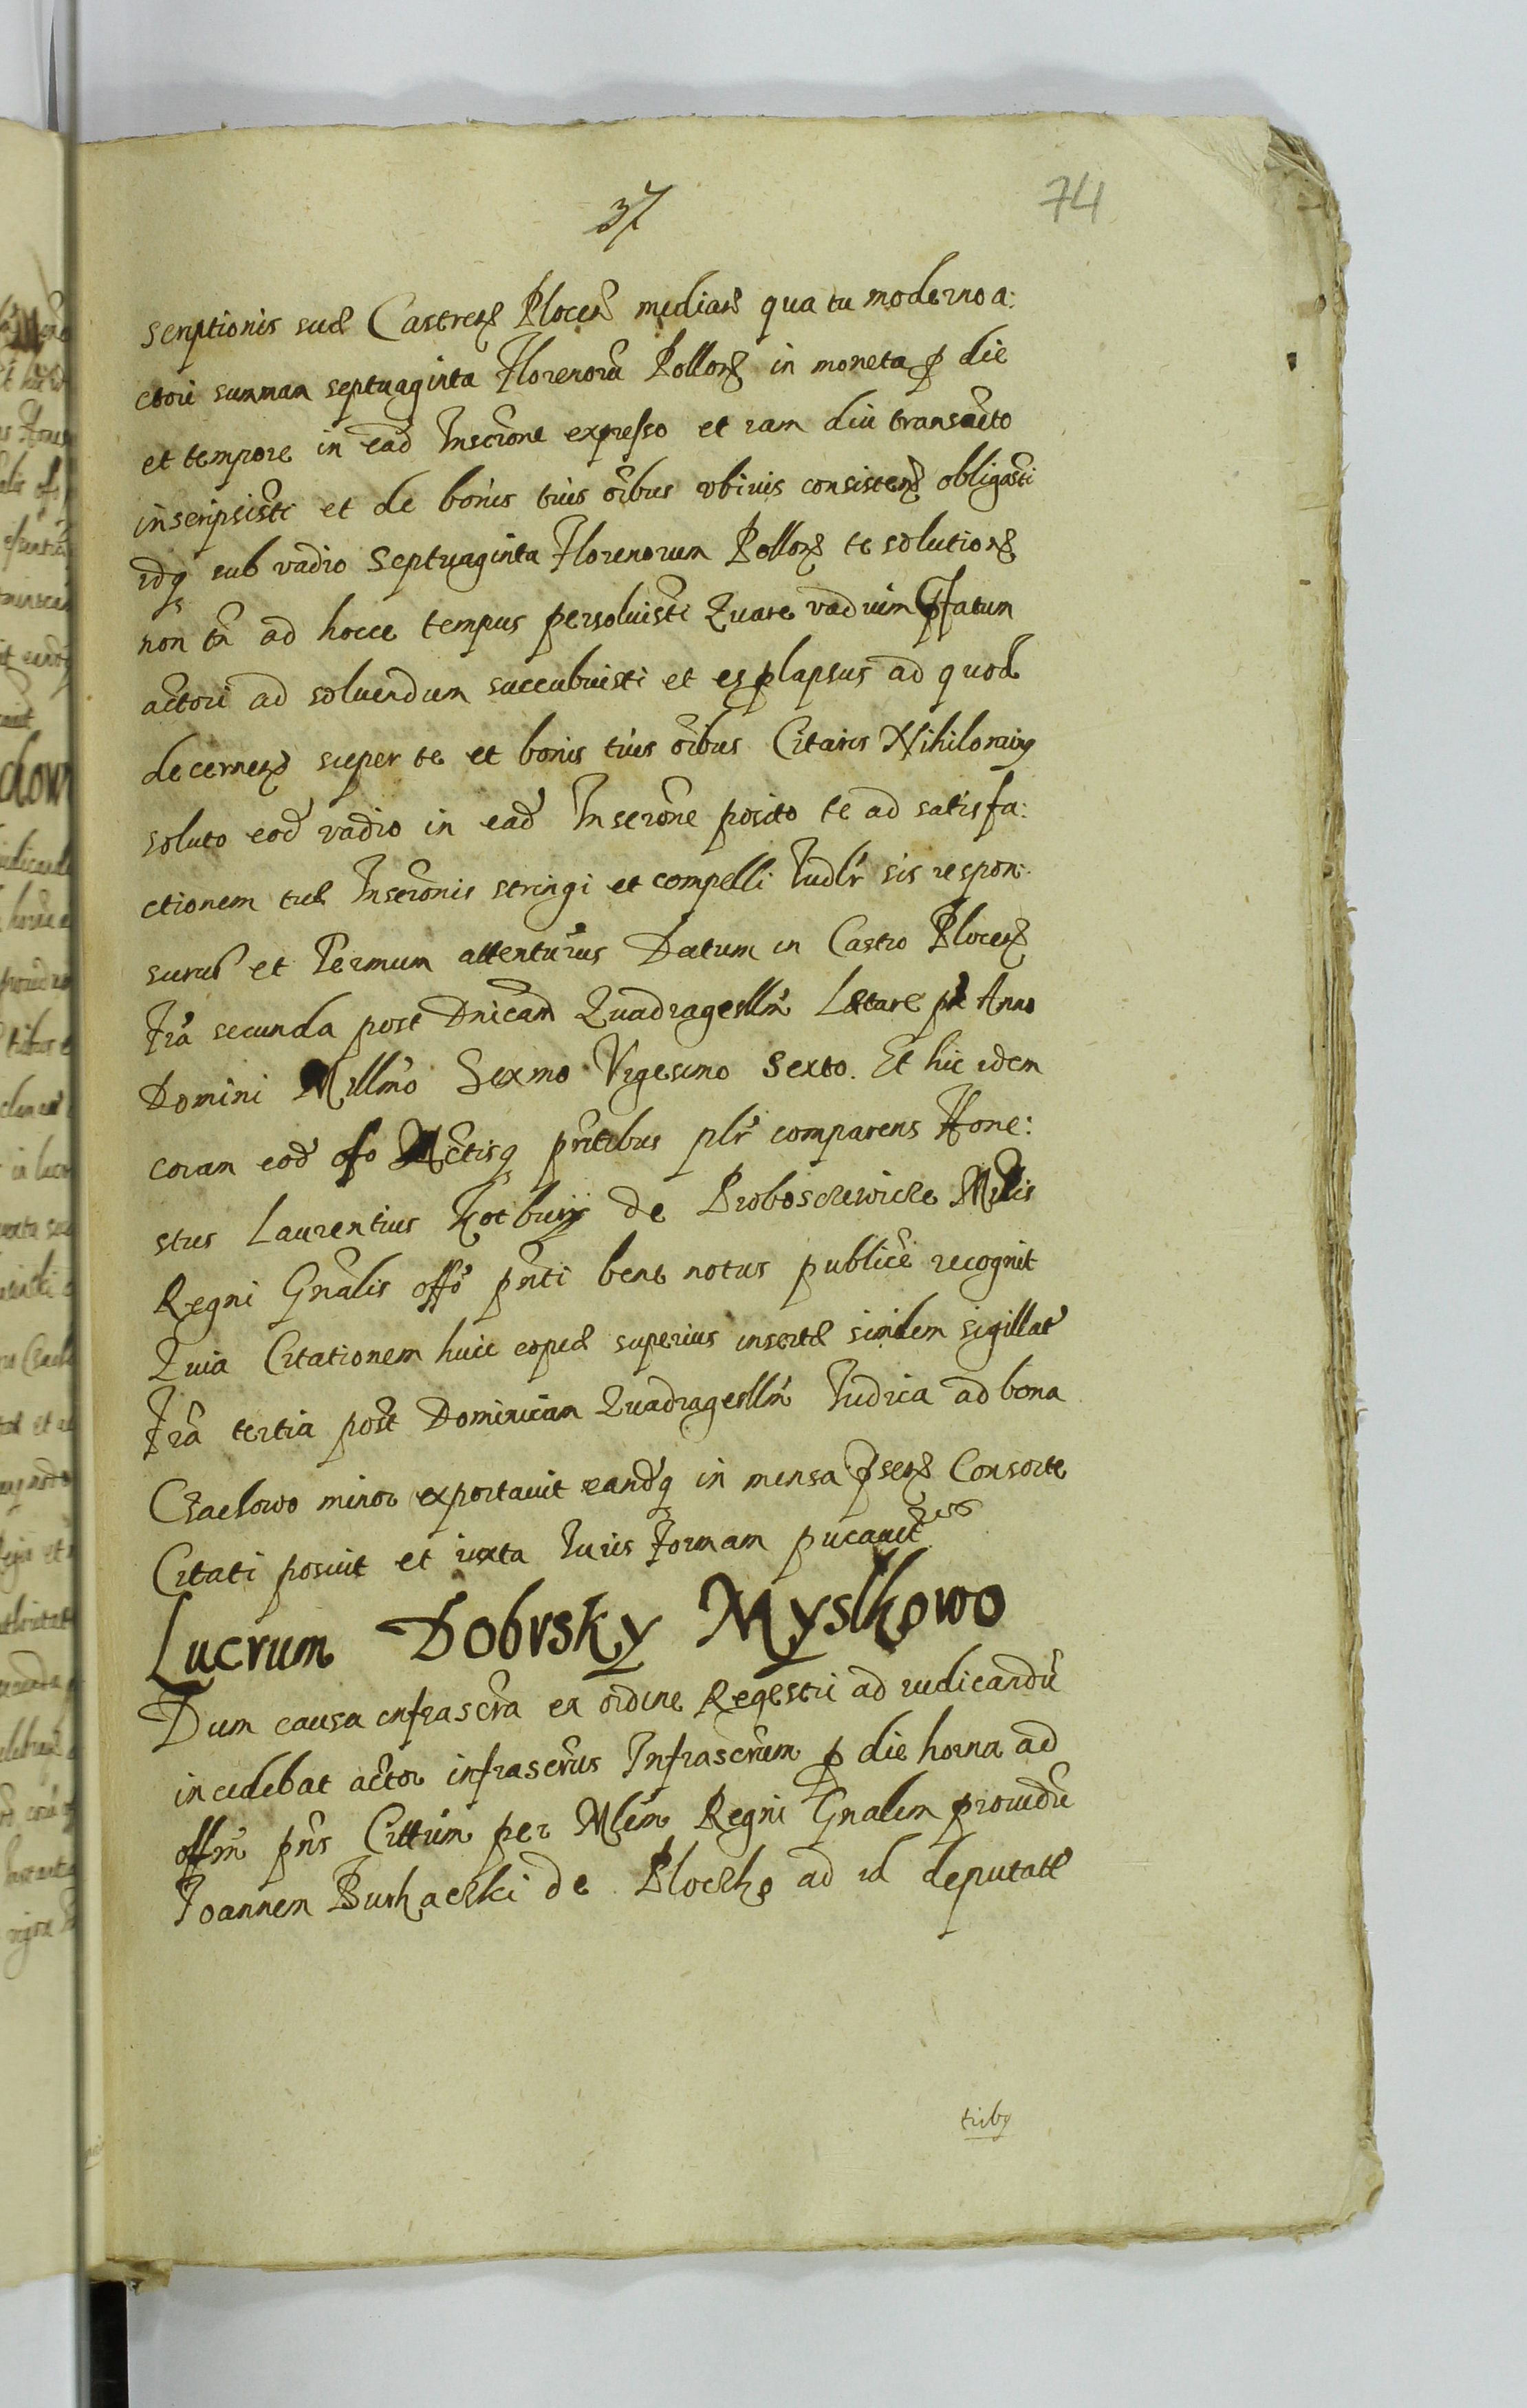 37
74
scriptionis suæ Castren̄ Plocen̄ median̄ qua tu moderno a:
ctori summam septuaginta Florenorū Pollon̄ in moneta p die
et tempore in eād Inscrōne expresso et iam diu transacto
inscripsisti et de bonis tuis oībus vbivis consisten̄ obligasti
idq sub vadio Septuaginta Florenorum Pollon̄ te solution̄
non tn̄ ad hocce tempus persoluisti Quare vadium pfatum
actori ad soluendum succubuisti et es plapsus ad quod
decernen̄ super te et bonis tuis oībus Citaris Nihilominq
soluto eod̄ vadio in ead̄ Inscrōne posito te ad satisfa:
ctionem tuæ Inscrōnis stringi et compelli Iudlr̄ sis respon:
surus et Termum attenturus Datum in Castro Plocen̄
Frā secunda post Dnīcam Quadragesllm̄ Lætare pr Anno
Domini Millmō Sexmo Vigesimo Sexto. Et hic idem
coram eod̄ ofo Actisq pn̄tibus plr̄ comparens Hone:
stus Laurentius de Mlis
Regni Gnālis offō pn̄ti bene notus publice recognit
Quia Citationem huic copiæ superius insertæ similem sigillat̄
Frā tertia post Dominicam Quadragesllm̄ Iudica ad bona
Czachowo minor exportavit eandq in mensa psen̄ Consorte
Citati posuit et iuxta Iuris formam pucauit
Lucrum Dobrsky Myslkowo
Dum causa infrascrā ex ordine Regestri ad iudicandū
incidebat actor infrascrūs Infrascrūm p die horna ad
offm̄ pn̄s Cittum per Mlem̄ Regni Gnalem prouidū
Joannem de ad id deputatē
tibq